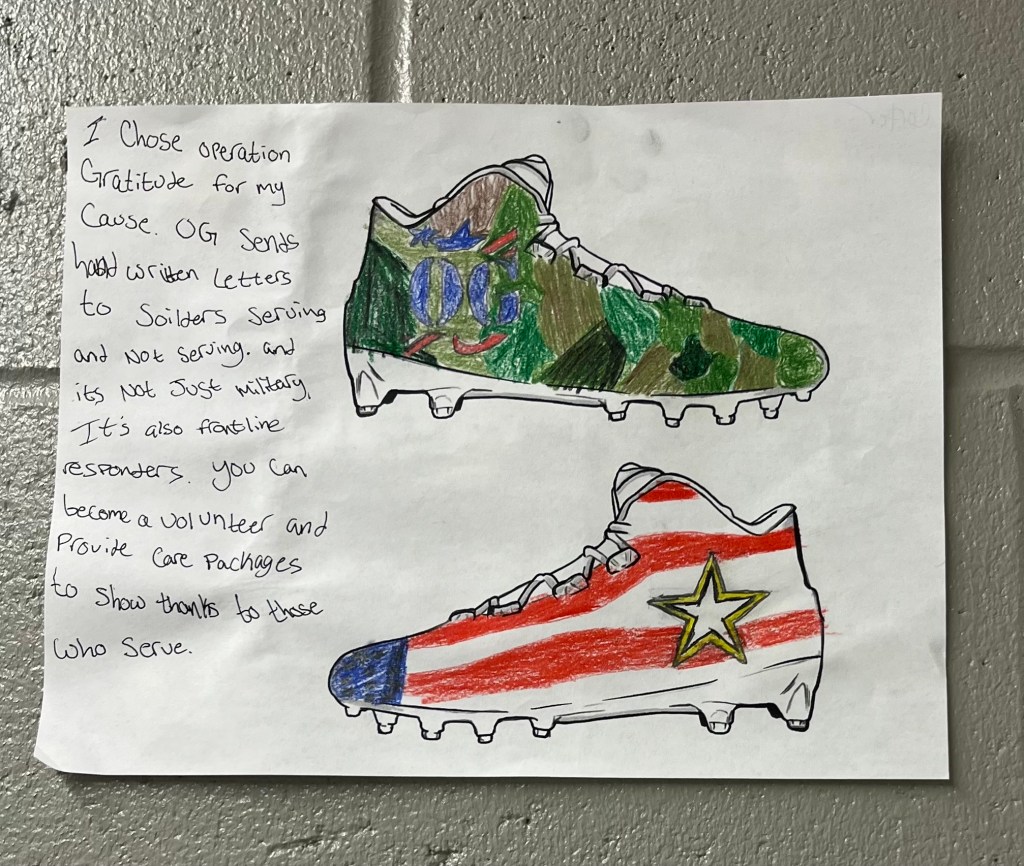 I Chose operation
Gratitude for my
Cause. OG Sends
hand written Letters
to Soilders Serving
and Not Serving. and
its Not Just military,
It's also frontline
responders. You Can
become a volunteer and
Provide Care Packages
to Show thanks to those
who Serve.
OG